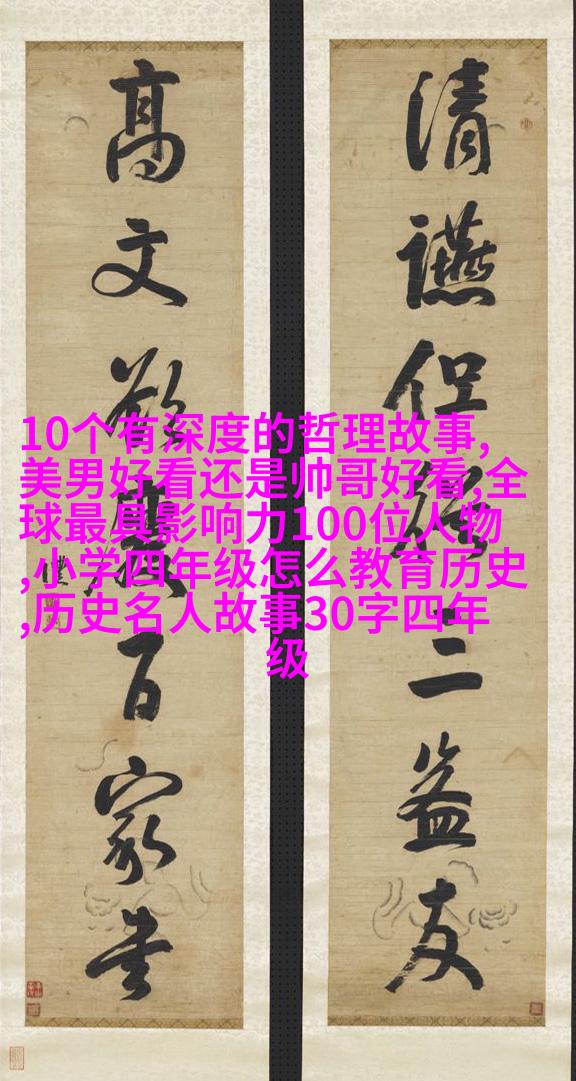 清讌但二益友
高文欲百家書
10个有深度的哲理故事,
美男好看还是帅哥好看,全
球最具影响力100位人物
,小学四年级怎么教育历史
,历史名人故事30字四年
级